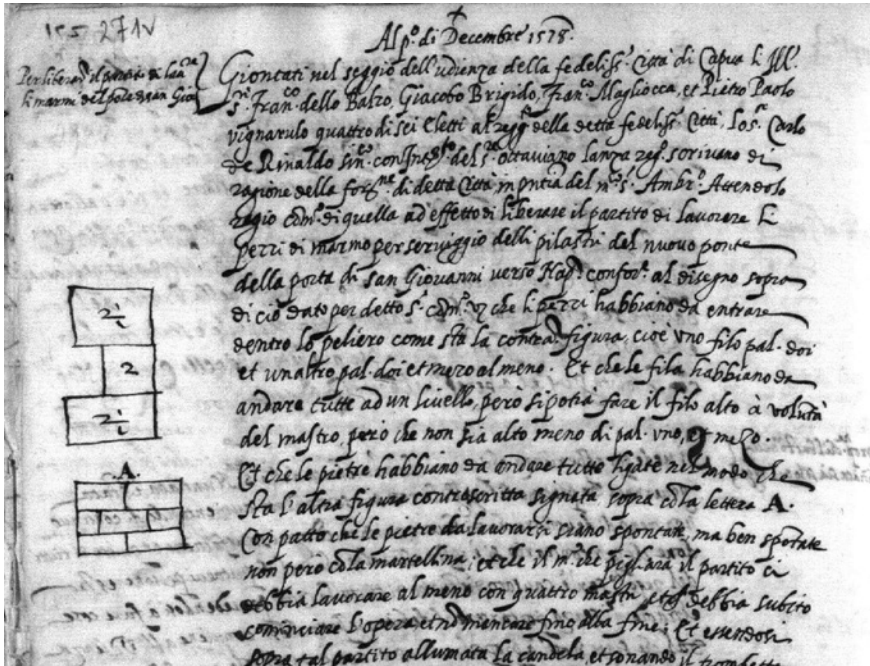 155 271v
A p.º di Decembre 1578.
Per liberar il partito di
li marmi del ponte di san Gio:
Giontati nel seggio dell'udienza della fedeliss.ª Città di Capua li Ill.
s.ri Fran.co dello Balzo, Giacobo Brigido, Fran.co Magliocca, et Pietro Paolo
vignarulo quattro di sei Eletti al regg.to della detta fedeliss.ª Città, Lo s.r Carlo
de Rinaldo sin.co con del s.r ottaviano lanza reg.º scrivano di
ragione della di detta Città in pntia del m.co s. Ambr.º Attendolo
regio di quella ad effetto di liberare il partito di lavorare li
pezzi di marmo per serviggio delli pilastri del nuovo ponte
della porta di san Giovanni verso Nap. confor.e al disegno sopra
di ciò dato per detto s.r che li pezzi habbiano da entrare
dentro lo peliero come sta la contra figura, cioè uno filo pal. doi
et un altro pal. doi et mezo al meno. Et che le fila habbiano da
andare tutte ad un livello, però si potrà fare il filo alto à voluntà
del mastro, però che non sia alto meno di pal. uno, et mezo.
Et che le pietre habbiano da andare tutte ligate nel modo che
sta l'altra figura contrascritta signata sopra co la lettera A.
Con patto che le pietre da lavorarsi siano spontate, ma ben spontate
non però co la martellina; et che il m.ro che pigliarà il partito ci
debbia lavorare al meno con quattro mastri, et debbia subito
cominciare l'opera et nō mancare fino alla fine; Et essendosi
sopra tal partito allumata la candela, et sonando il trombetta
2½
2
2½
.A.